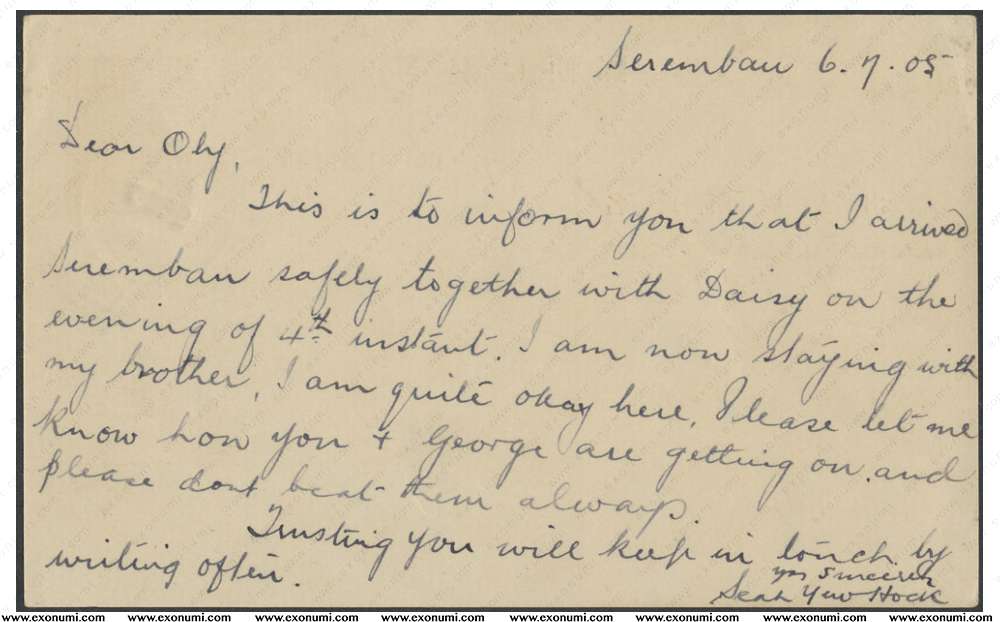 Seremban 6.7.05
Dear Oly,
This is to inform you that I arrived
Seremban safely together with Daisy on the
evening of 4th instant. I am now staying with
my brother, I am quite okay here, Please let me
know how you + George are getting on and
please dont beat them always.
Trusting you will keep in touch by
writing often.
yrs Sincerely
Seah Yew Hock
www.exonumi.com www.exonumi.com www.exonumi.com www.exonumi.com www.exonumi.com www.exonumi.com www.exonumi.com